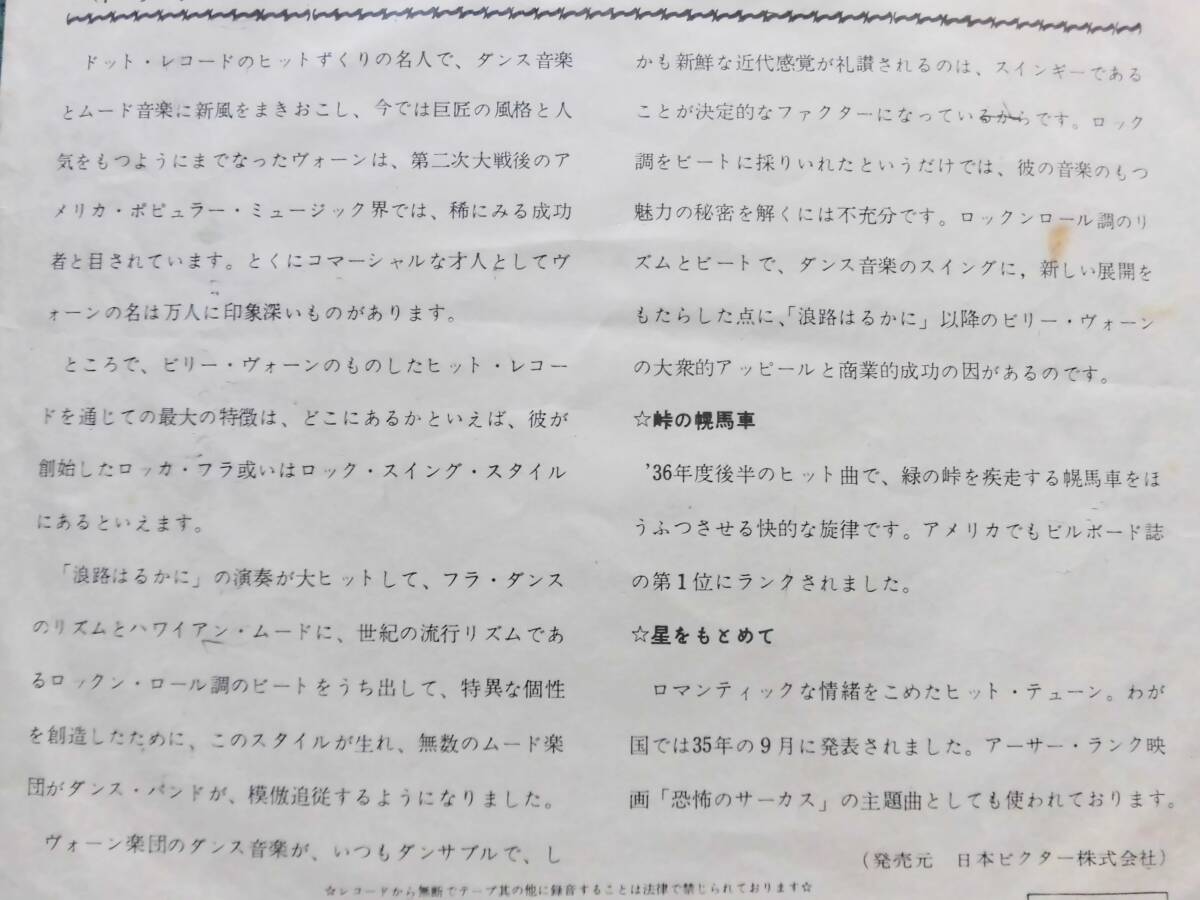 ドット・レコードのヒットずくりの名人で、ダンス音楽
とムード音楽に新風をまきおこし、今では巨匠の風格と人
気をもつようにまでなったヴォーンは、第二次大戦後のア
メリカ・ポピュラー・ミュージック界では、稀にみる成功
者と目されています。とくにコマーシャルな才人としてヴ
ォーンの名は万人に印象深いものがあります。
ところで、ビリー・ヴォーンのものしたヒット・レコー
ドを通じての最大の特徴は、どこにあるかといえば、彼が
創始したロッカ・フラ或いはロック・スイング・スタイル
にあるといえます。
「浪路はるかに」の演奏が大ヒットして、フラ・ダンス
のリズムとハワイアン・ムードに、世紀の流行リズムであ
るロックン・ロール調のビートをうち出して、特異な個性
を創造したために、このスタイルが生れ、無数のムード楽
団がダンス・バンドが、模倣追従するようになりました。
ヴォーン楽団のダンス音楽が、いつもダンサブルで、し
かも新鮮な近代感覚が礼讃されるのは、スインギーである
ことが決定的なファクターになっているからです。ロック
調をビートに採りいれたというだけでは、彼の音楽のもつ
魅力の秘密を解くには不充分です。ロックンロール調のリ
ズムとビートで、ダンス音楽のスイングに，新しい展開を
もたらした点に、「浪路はるかに」以降のビリー・ヴォーン
の大衆的アッピールと商業的成功の因があるのです。
☆峠の幌馬車
’36年度後半のヒット曲で、緑の峠を疾走する幌馬車をほ
うふつさせる快的な旋律です。アメリカでもビルボード誌
の第1位にランクされました。
☆星をもとめて
ロマンティックな情緒をこめたヒット・テューン。わが
国では35年の9月に発表されました。アーサー・ランク映
画「恐怖のサーカス」の主題曲としても使われております。
（発売元　日本ビクター株式会社）
☆レコードから無断でテープ其の他に録音することは法律で禁じられております☆